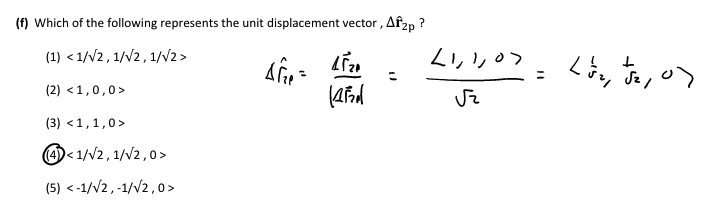 (f) Which of the following represents the unit displacement vector , Δr̂₂ₚ ?
(1) < 1/√2 , 1/√2 , 1/√2 >
(2) < 1 , 0 , 0 >
(3) < 1 , 1 , 0 >
(4) < 1/√2 , 1/√2 , 0 >
(5) < -1/√2 , -1/√2 , 0 >
Δr̂₂ₚ = Δr⃗₂ₚ / |Δr⃗₂ₚ| = <1, 1, 0> / √2 = <1/√2, 1/√2, 0>